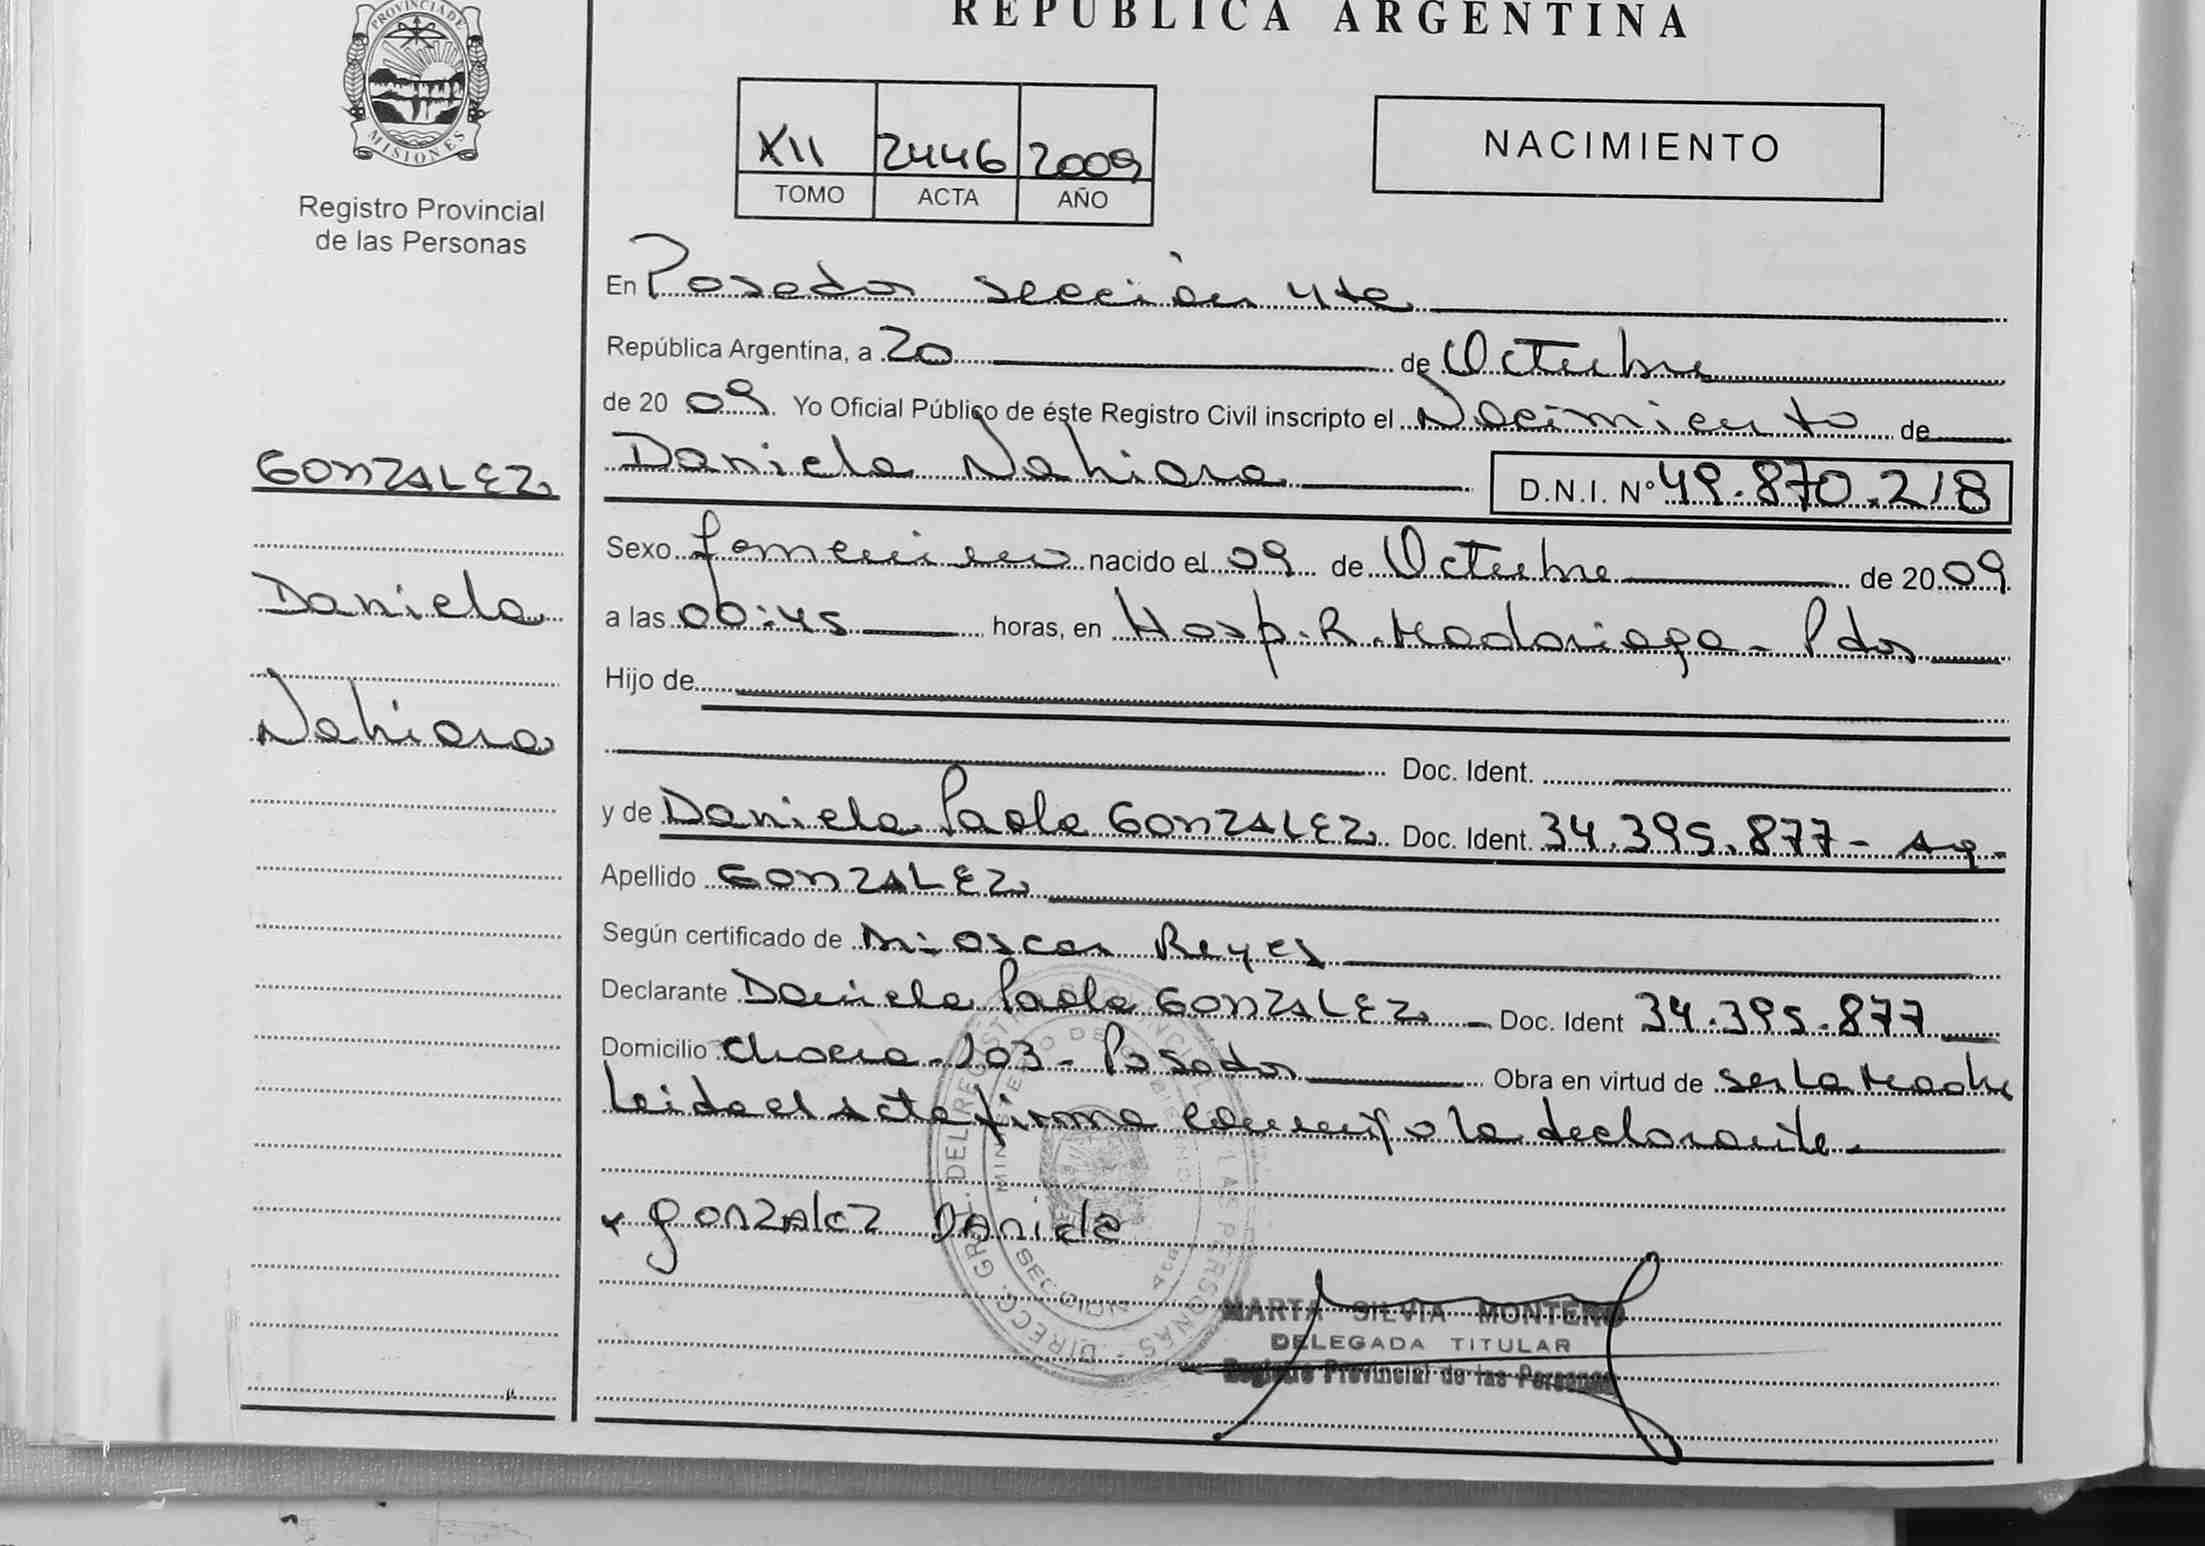 REPUBLICA ARGENTINA
PROVINCIA DE
MISIONES
Registro Provincial
de las Personas
XII 2446 2009
TOMO ACTA AÑO
NACIMIENTO
En Posadas sección 4ta
República Argentina, a 20 de Octubre
de 2009 Yo Oficial Público de éste Registro Civil inscripto el Nacimiento de
Daniela Nahiara D.N.I. Nº 49.870.218
GONZALEZ
Daniela
Nahiara
Sexo femenino nacido el 09 de Octubre de 2009
a las 00:45 horas, en Hosp. R. Madariaga - Pdas
Hijo de
Doc. Ident.
y de Daniela Paola GONZALEZ Doc. Ident. 34.395.877 - Ag-
Apellido GONZALEZ
Según certificado de Oscar Reyes
Declarante Daniela Paola GONZALEZ - Doc. Ident 34.395.877
Domicilio Chacra - 103 - Posadas Obra en virtud de ser la Madre
Leida el acta firma conmigo la declarante
x gonzalez Daniela
DIRECC. GRAL. DEL REGISTRO PROVINCIAL DE LAS PERSONAS
MINISTERIO DE GOBIERNO
SECCION 4ta
MARTA SILVIA MONTERO
DELEGADA TITULAR
Registro Provincial de las Personas